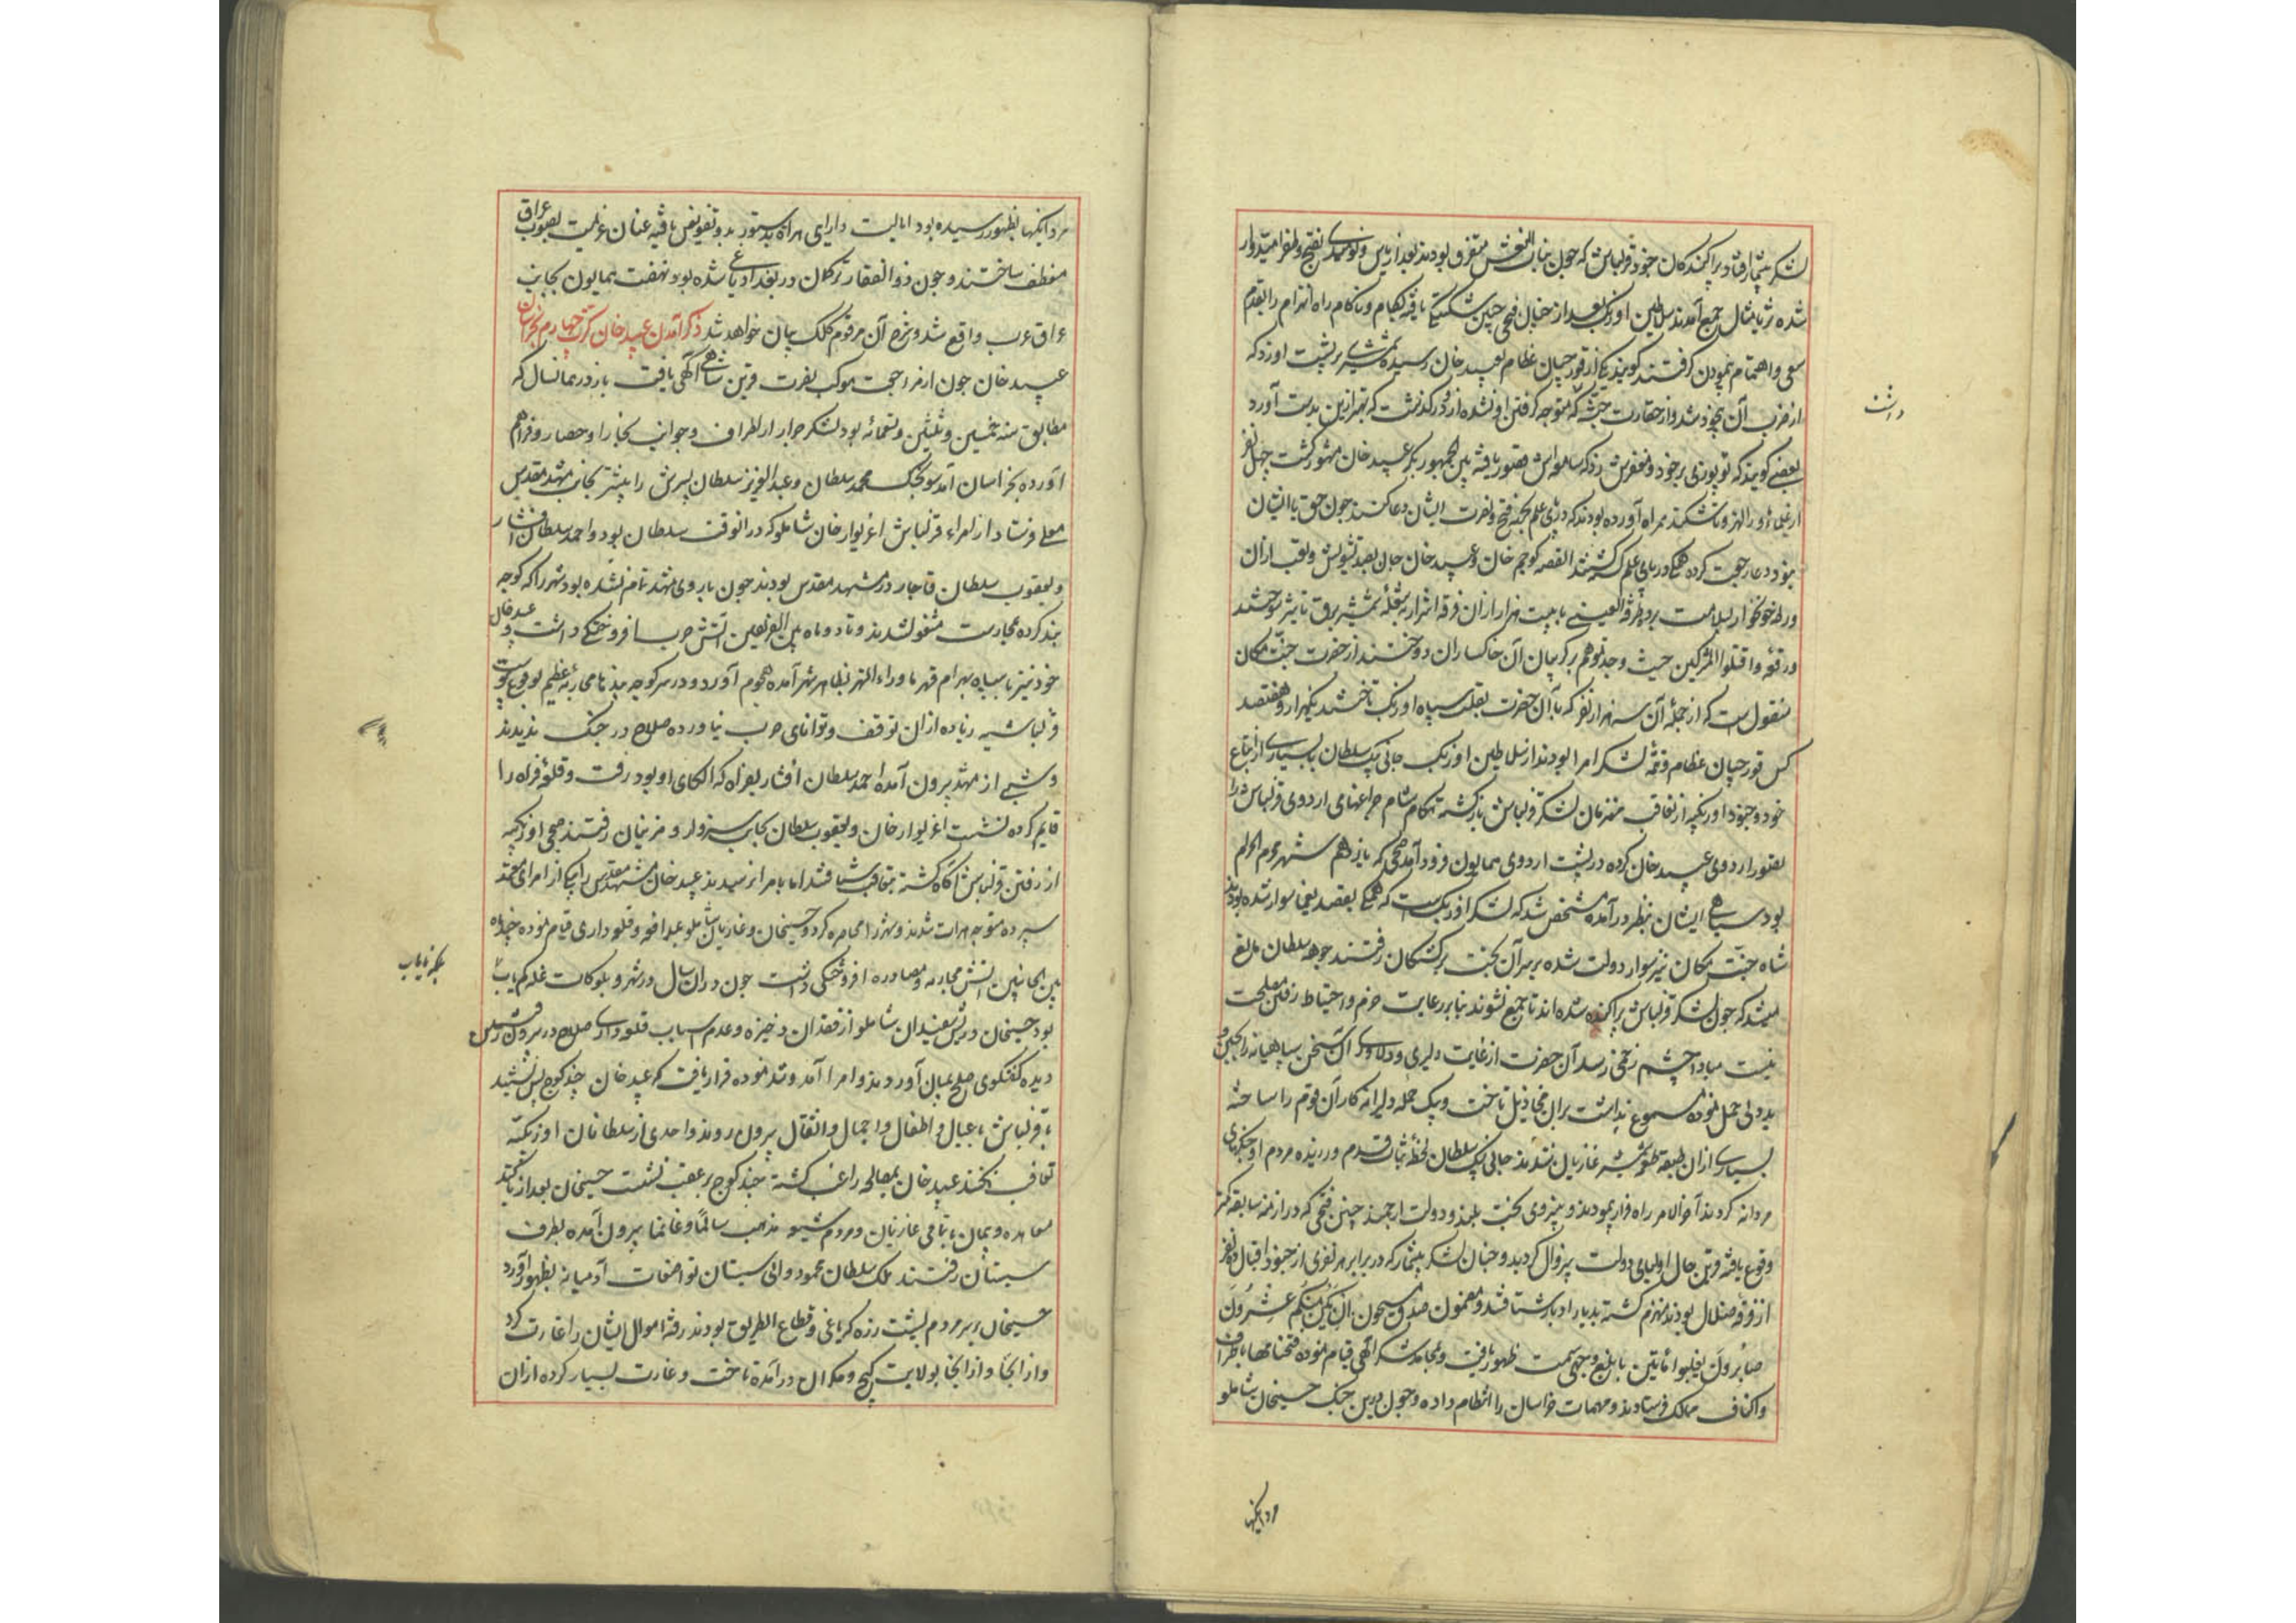 لشکر بیشمار افتاد پراکندگان جنود قزلباش که چون بنات النعش متفرق بودند بعد از یاس و نومیدی بفتح و ظفر امیدوار
شده ثریا مثال جمع آمدند سلاطین اوزبک بعد از خیال فتحی چنین شکستی یافته بکام و ناکام راه انهزام را بقدم
سعی و اهتمام پیمودن گرفتند گویند یکی از قورچیان عظام بعبید خان رسیده شمشیری بر پشت او زد که
از ضرب آن بیخود شد و از حقارت جثه که متوجه گرفتن او نشده ازو در گذشت که بهتر ازین بدست آورد
بعضی گویند که توپوزی بر خود و مغفرش زد که سامعه اش قصور یافته بین الجمهور بکر عبید خان مشهور گشت چهل نفر
از علماء ماوراء النهر و تاشکند همراه آورده بودند که در پای علم بجهة فتح و نصرت ایشان دعا کنند چون حق با ایشان
نبود دعا رجعت کرده همگی در پای علم کشته شدند القصه کوجم خان و عبید خان جان بصد تشویش و تعب ازان
ورطه خونخوار بسلامت بردند طرفة العینی تا بیست هزار ازان فرقه اشرار بشعله شمشیر برق تاثیر سوختند
ورقعه واقتلوا المشرکین حیث وجدتموهم بر گریبان آن خاکساران دوختند از حضرت جنت مکان
منقول است که از جمله آن سه هزار نفر که با آن حضرت بقلب سپاه اوزبک تاختند یکهزار و هفتصد
کس قورچیان عظام و تتمه لشکر امرا بودند از سلاطین اوزبک جانی بیک سلطان با بسیاری از اتباع
خود و جنود اوزبکیه از تعاقب منهزمان لشکر قزلباش بازگشته هنگام شام چراغهای اردوی قزلباش را
بتصور اردوی عبید خان کرده در پشت اردوی همایون فرود آمد صبحی که یازدهم شهر محرم الحرام
بود سیاهی ایشان بنظر درآمده مشخص شد که لشکر اوزبک است که همگی بقصد یغما سوار شده بودند
شاه جنت مکان نیز سوار دولت شده بر سر آن بخت برگشتگان رفتند جوهه سلطان مانع
میشد که چون لشکر قزلباش پراکنده شده اند تا جمع نشوند بنابر رعایت حزم و احتیاط رفتن مصلحت
نیست مبادا چشم زخمی رسد آن حضرت از غایت دلیری و دلاوری آن سخن سپاهیانه را بجبن و
بددلی حمل نموده مسموع نداشت بران مخاذیل تاخت و بیک حمله دلیرانه کار آن قوم را ساخته
بسیاری ازان طبقه طعمه شمشیر غازیان شدند جانی بیک سلطان لحظه ثبات قدم ورزیده مردم او جنگهای
مردانه کردند آخر الامر راه فرار پیمودند و بنیروی بخت بلند و دولت ارجمند چنین فتحی که در ازمنه سابقه کمتر
وقوع یافته قرین حال اولیای دولت بیزوال گردید و چنان لشکر بیشمار که در برابر هر نفری از جنود اقبال ده نفر
از فرقه ضلال بودند منهزم گشته بدیار ادبار شتافتند و مضمون صدق مشحون ان یکن منکم عشرون
صابرون یغلبوا مائتین بابلغ وجهی سمت ظهور یافت و بمحامد شکر الهی قیام نموده فتحنامها باطراف
و اکناف ممالک فرستادند و مهمات خراسان را انتظام داده و چون درین جنگ حسینخان شاملو
داشت
مردانگیها
مردانگیها بظهور رسیده بود ایالت و دارایی هراة بدستور بدو تفویض یافته عنان عزیمت بصوب عراق
منعطف ساختند و چون ذوالفقار ترکمان در بغداد یاغی شده بود نهضت همایون بجانب
عراق عرب واقع شد و شرح آن مرقوم کلک بیان خواهد شد ذکر آمدن عبید خان کرت چهارم بخراسان
عبید خان چون از مراجعت موکب نصرت قرین شاهی آگهی یافت باز در همانسال که
مطابق سنه خمس و ثلثین و تسعمائه بود لشکر جرار از اطراف و جوانب بخارا و حصار و فراهم
آورده بخراسان آمد سونجک محمد سلطان و عبدالعزیز سلطان پسرش را پیشتر بجانب مشهد مقدس
معلی فرستاد از امراء قزلباش اغزیوار خان شاملو که درانوقت سلطان بود و احمد سلطان افشار
و یعقوب سلطان قاجار در مشهد مقدس بودند چون باروی مشهد تمام نشده بود شهر را کوچه
بند کرده بمحاربت مشغول شدند و تا دو ماه بین الفریقین آتش حرب افروختگی داشت و عبد خان
خود نیز با سپاه بهرام قهر ماوراء النهر بظاهر شهر آمده هجوم آورد و در سر کوچه بندها محاربه عظیم بوقوع پیوست
قزلباشیه زیاده ازان توقف و توانای حرب نیاورده صلاح در جنگ ندیدند
و شبی از مشهد بیرون آمده احمد سلطان افشار بفراه که الکای او بود رفت و قلعه فراه را
قایم کرده نشست اغزیوار خان و یعقوب سلطان بجانب سبزوار و مزینان رفتند صبحی اوزبکیه
از رفتن قزلباش آگاه گشته بتعاقب شتافتند اما بامرا نرسیدند عبید خان مشهد مقدس را بیکی از امرای معتمد
سپرده متوجه هرات شدند و شهر را محاصره کرد و حسینخان و غازیان شاملو بمدافعه و قلعه داری قیام نموده چند ماه
بین الجانبین آتش محاربه و مصادره افروختگی داشت چون دران سال در شهر و بلوکات غله کمیاب
بود حسینخان و ریش سفیدان شاملو از فقدان ذخیره و عدم اسباب قلعه داری صلاح در بیرون رفتن
دیده گفتگوی صلح بمیان آوردند و امرا آمد و شد نموده قرار یافت که عبید خان چند کوچ پس نشیند
تا قزلباش با عیال و اطفال و احمال و اثقال بیرون روند و احدی از سلطانان اوزبکیه
تعاقب نکنند عبید خان بمصالحه راغب گشته چند کوچ بر عقب نشست حسینخان بعد از تاکید
معاهده و پیمان با تمامی غازیان و مردم شیعه مذهب سالما و غانما بیرون آمده بطرف
سیستان رفتند ملک سلطان محمود والی سیستان تواضعات آدمیانه بظهور آورد
حسینخان بر سر مردم پشت زره که یاغی و قطاع الطریق بودند رفته اموال ایشان را غارت کرد
و از آنجا و از آنجا بولایت کیج و مکران درآمده تاخت و غارت بسیار کرده ازان
بلکه نایاب